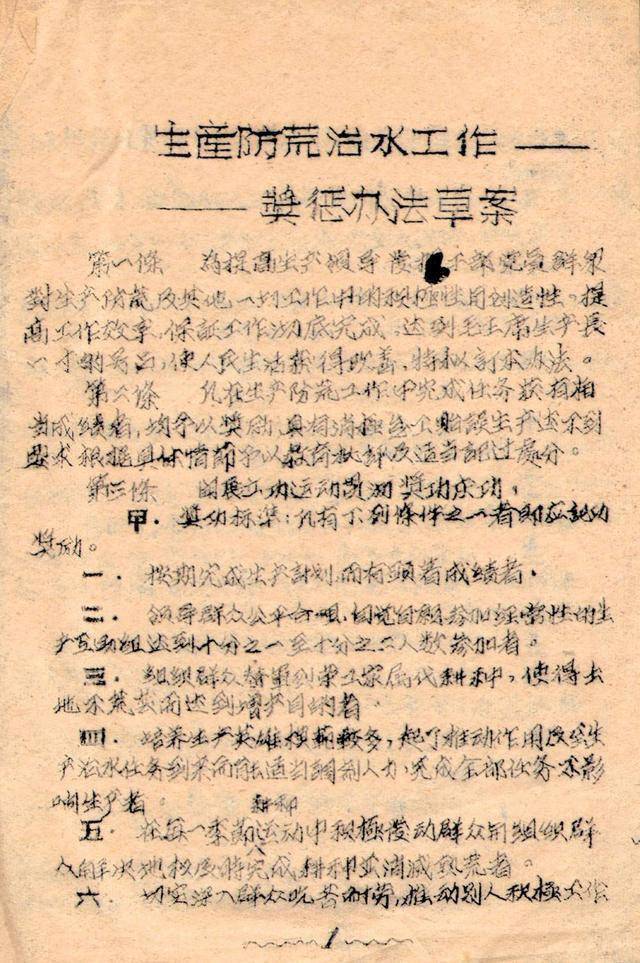 生産防荒治水工作——
——獎惩办法草案
第一條 為提高生产領导發揮干部党員群众
對生产防荒及其他一切工作中的积極性用創造性。提
高工作效率,保証工作澈底完成,达到毛主席生产長
一寸的号召,使人民生活获得改善,特拟訂本办法。
第二條 凡在生产防荒工作中完成任务获有相
当成績者,均予以獎励,具有消極怠工貽誤生产达不到
要求根据具体情節予以教育批評及适当記过處分。
第三條 開展立功运动貫澈獎功庆功,
甲.獎功标準:凡有下列條件之一者即应記功
獎励。
一.按期完成生产計划而有顕著成績者.
二.領导群众公平合理,自覚自願参加經常性的生
产互助組达到十分之一至十分之二人数参加者。
三.組織群众 到荣工家属代耕种,使得土
地不荒芜而达到增产目的者.
四.培养生产英雄模範較多,起了推动作用及
产治水任务到来而能适当調剂人力,完成全部任务不影
响生产者。 耕种
五.在每一季節运动中积極發动群众用組織群
人解决地 完成耕种並消滅熟荒者。
六.切实深入群众吃苦耐劳,推动别人积極工作
1